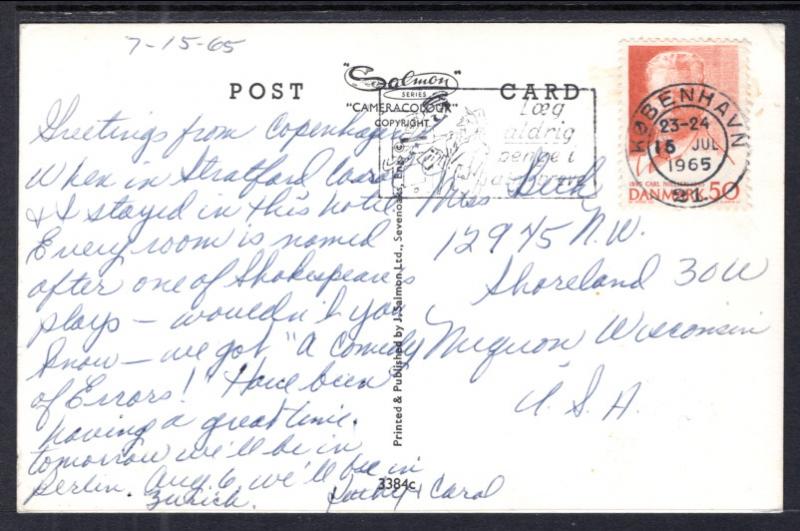 7-15-65
POST CARD
"Salmon"
SERIES
"CAMERACOLOUR"
COPYRIGHT
Læg
aldrig
penge i
KØBENHAVN
23-24
15 JUL
1965
DANMARK 50
Greetings from Copenhagen
When in Stratford Carol
& I stayed in this hotel.
Every room is named
after one of Shakespeares
plays — wouldn't you
know — we got "A Comedy
of Errors! Have been
having a great time.
tomorrow we'll be in
Berlin. Aug. 6, we'll be in
Zurich. Kathy & Carol
Miss
12945 N.W.
Shoreland 30W
Mequon Wisconsin
U.S.A.
Printed & Published by J. Salmon Ltd., Sevenoaks, Eng.
3384c